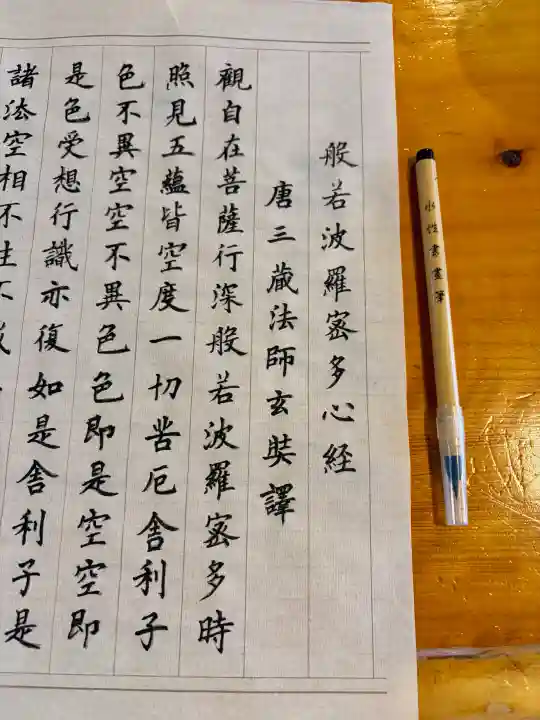 般若波羅蜜多心経
唐三蔵法師玄奘譯
觀自在菩薩行深般若波羅蜜多時
照見五蘊皆空度一切苦厄舎利子
色不異空空不異色色即是空空即
是色受想行識亦復如是舎利子是
諸法空相不生不
水性書畫筆